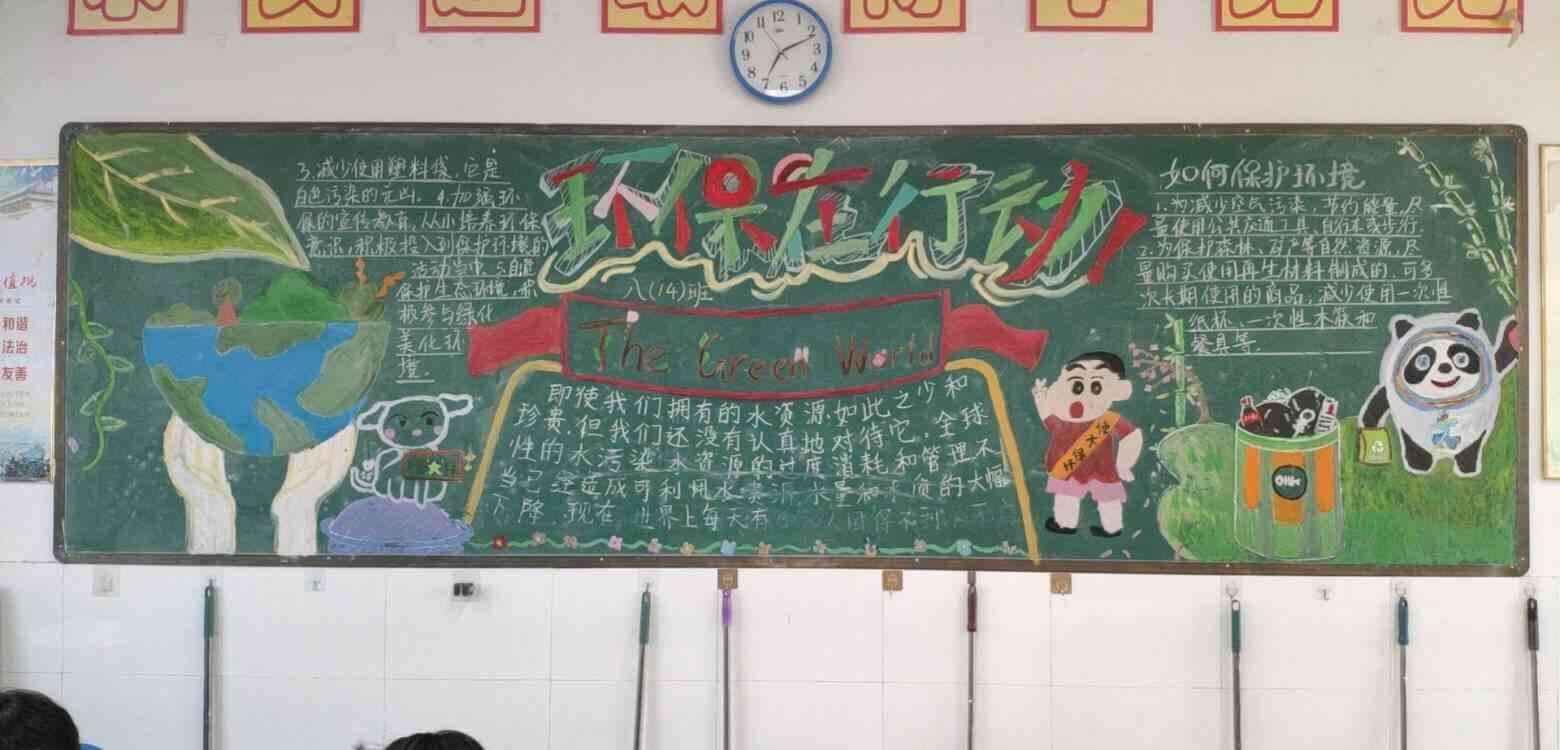 环保在行动!
八(14)班
The Green World
3.减少使用塑料袋,它是
白色污染的元凶。4.加强环
保的宣传教育,从小培养环保
意识,积极投入到保护环境的
活动当中。5.自觉
保护生态环境,积
极参与绿化
美化环
境。
即使我们拥有的水资源如此之少和
珍贵,但我们还没有认真地对待它,全球
性的水污染水资源的过度消耗和管理不
当已经造成可利用水资源水量和水质的大幅
下降,现在世界上每天有
如何保护环境
1.为减少空气污染,节约能量,尽
量使用公共交通工具、自行车或步行
2.为保护森林、矿产等自然资源,尽
量购买使用再生材料制成的,可多
次长期使用的商品,减少使用一次性
纸杯、一次性木筷和
餐具等。
环保大使
值观
和谐
法治
友善
12
1
2
3
4
5
6
7
8
9
10
11